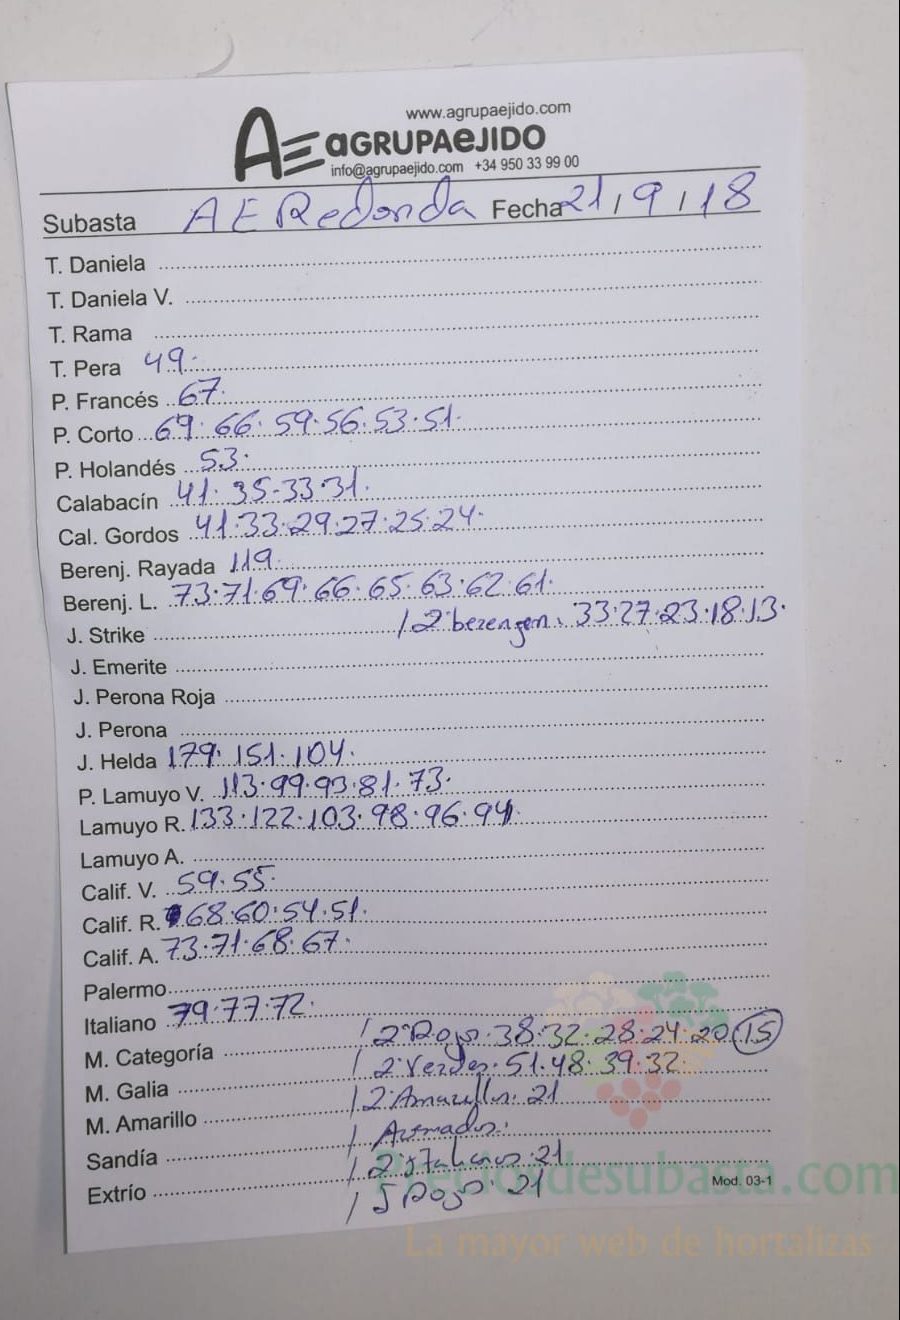 www.agrupaejido.com
AE aGRUPAeJIDO
info@agrupaejido.com +34 950 33 99 00
Subasta AE Redonda Fecha 21/9/18
T. Daniela
T. Daniela V.
T. Rama
T. Pera 49.
P. Francés 67.
P. Corto 69.66.59.56.53.51.
P. Holandés 53.
Calabacín 41.35-33.31.
Cal. Gordos 41.33.29.27.25.24.
Berenj. Rayada 119.
Berenj. L. 73.71.69.66.65.63.62.61.
J. Strike / 2ª berengen. 33.27.23.18.13.
J. Emerite
J. Perona Roja
J. Perona
J. Helda 179.151.104.
P. Lamuyo V. 113.99.93.81.73.
Lamuyo R. 133.122.103.98.96.94.
Lamuyo A.
Calif. V. 59.55.
Calif. R. 68.60.54.51.
Calif. A. 73.71.68.67.
Palermo
Italiano 79.77.72.
M. Categoría / 2ª Rojo.38.32.28.24.20.15
M. Galia / 2ª Verdes.51.48.39.32.
M. Amarillo / 2ª Amarillos.21
Sandía / Asomados.
Extrío / 2ª Italianos.21
/ Rojo 21
Mod. 03-1
Preciosdesubasta.com
La mayor web de hortalizas